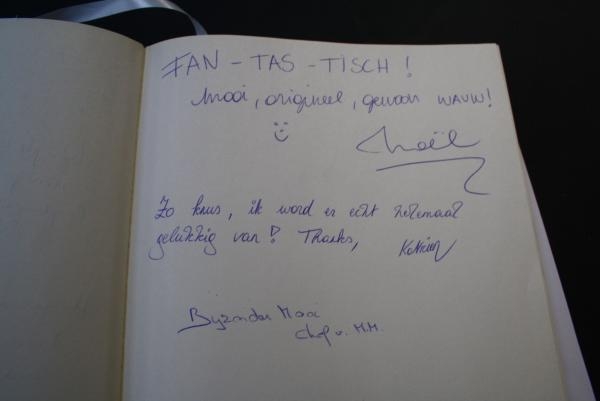 FAN - TAS - TISCH !
Mooi, origineel, gewoon WAUW!
Zo knus, ik word er echt helemaal
gelukkig van! Thanks, Katrien
Bijzonder Mooi
M.M.